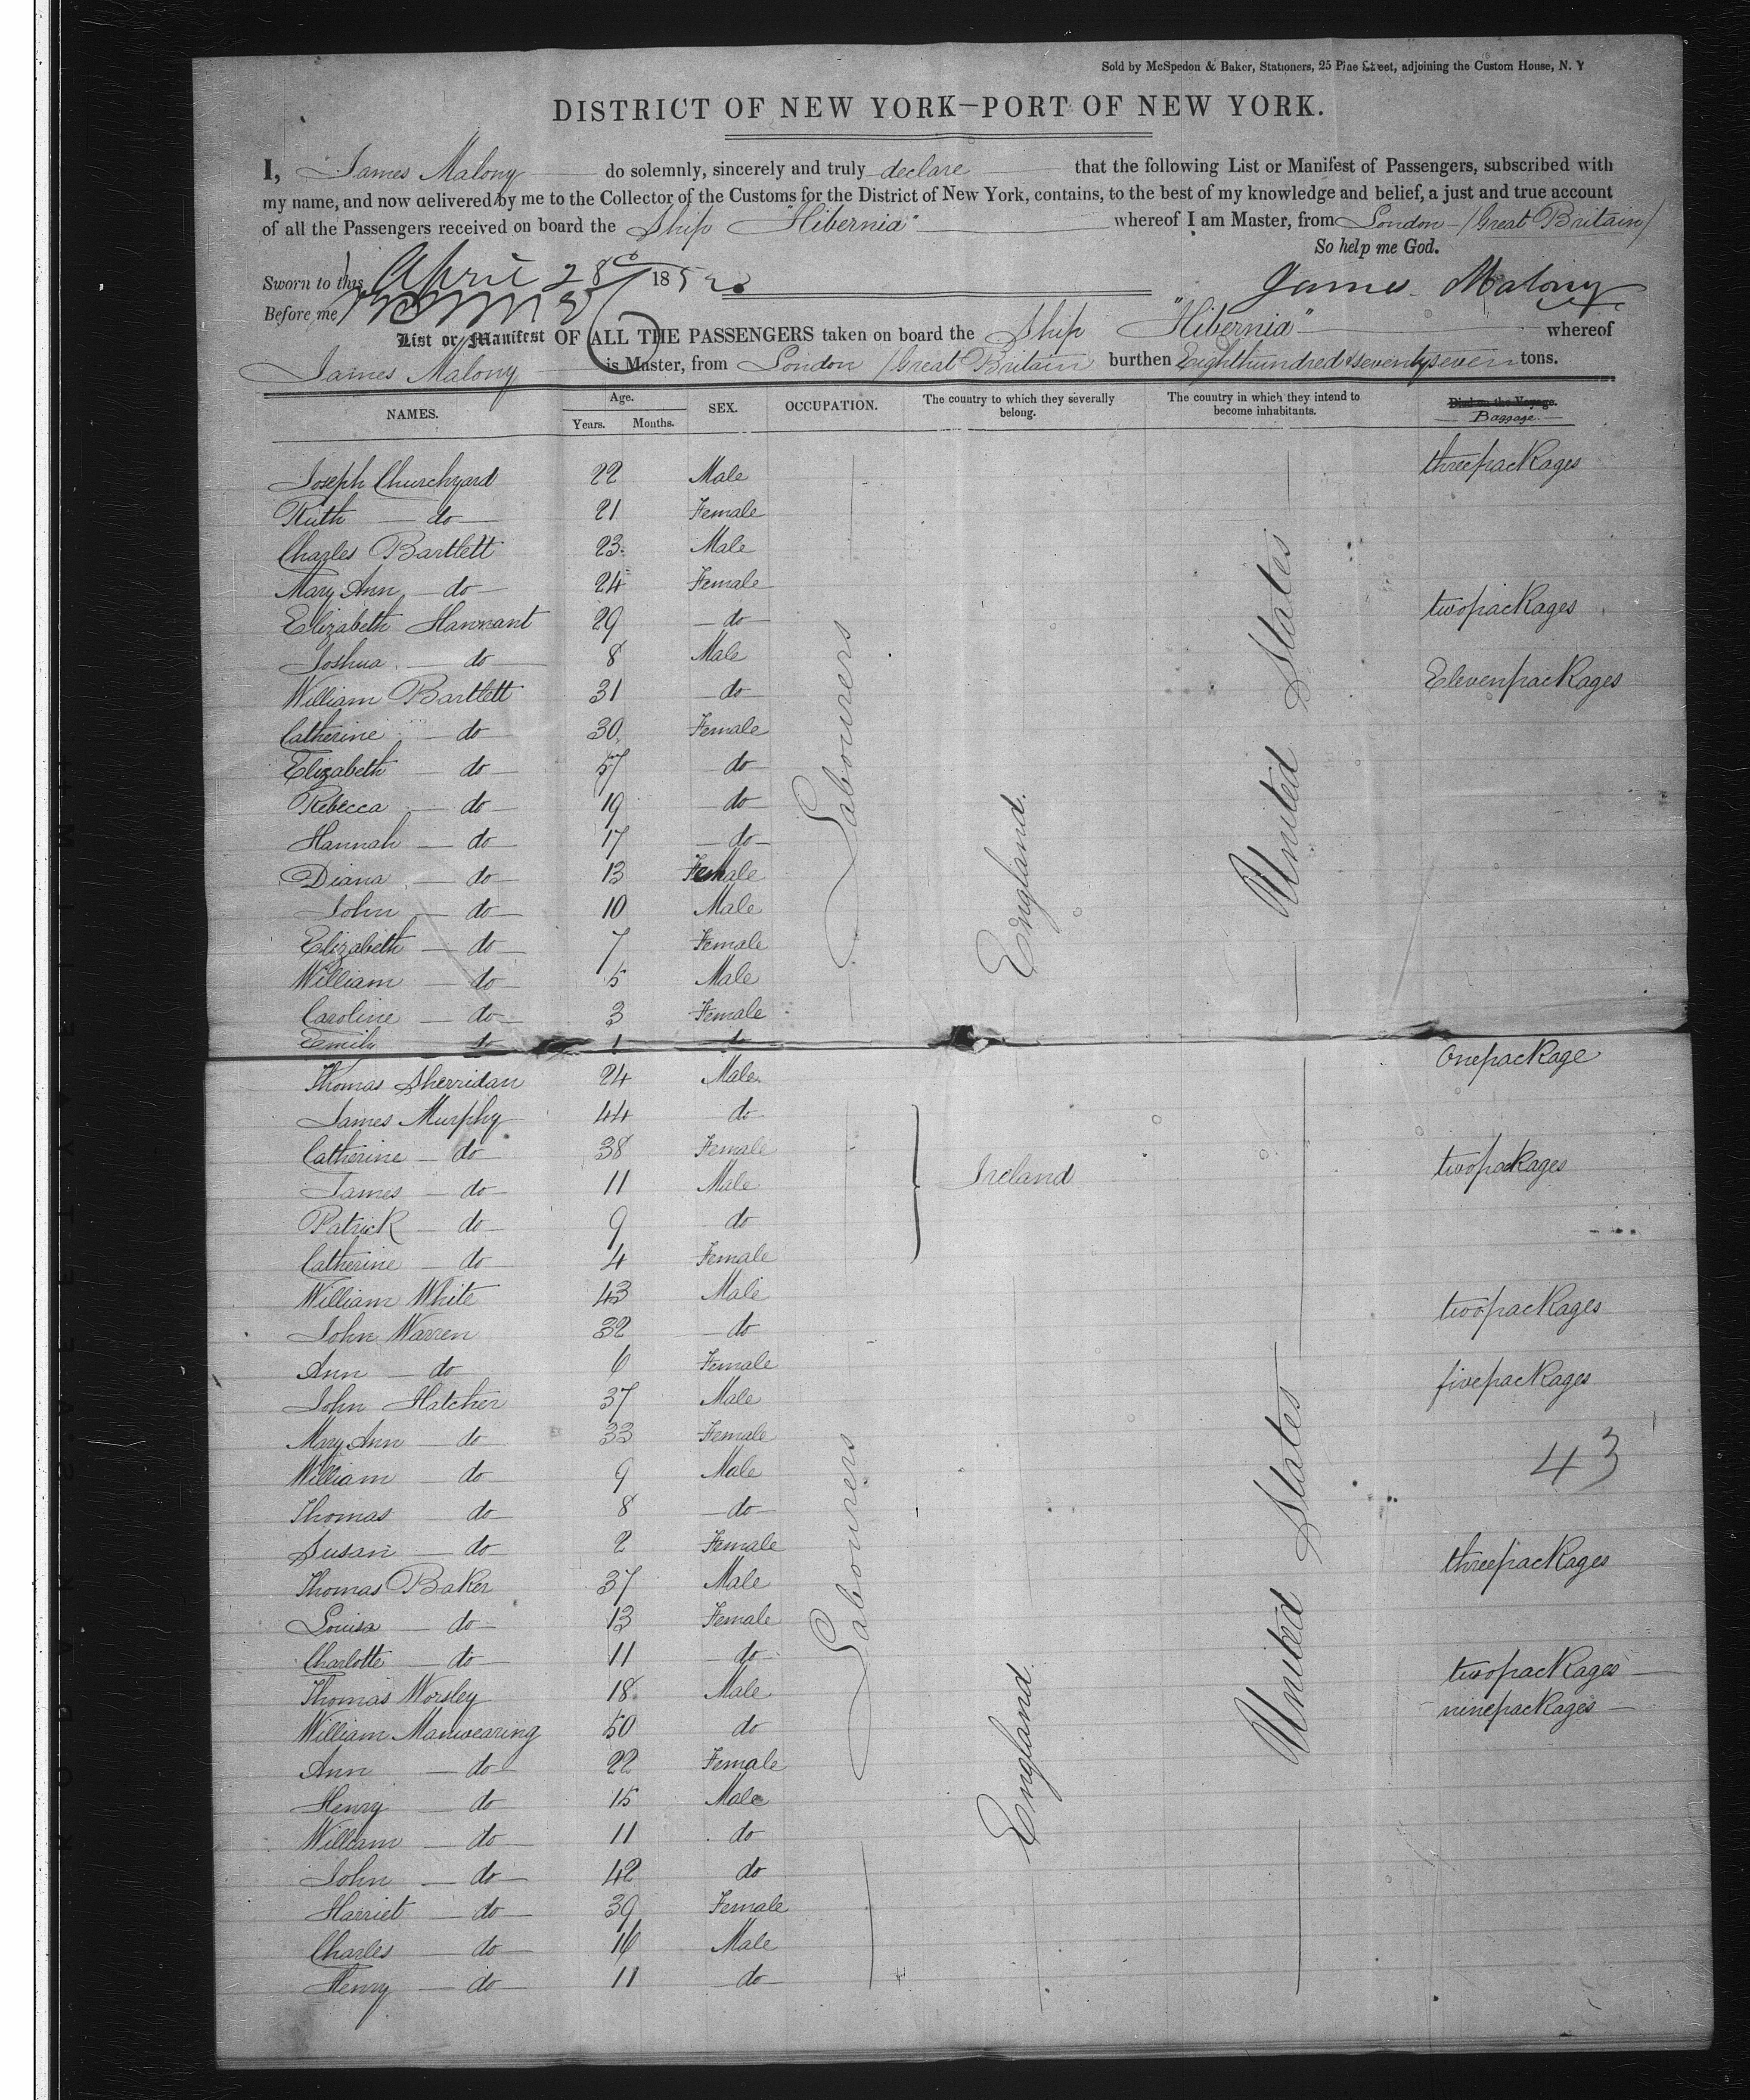 Sold by McSpedon & Baker, Stationers, 25 Pine Street, adjoining the Custom House, N. Y
DISTRICT OF NEW YORK—PORT OF NEW YORK.
I, James Malony do solemnly, sincerely and truly declare that the following List or Manifest of Passengers, subscribed with
my name, and now delivered by me to the Collector of the Customs for the District of New York, contains, to the best of my knowledge and belief, a just and true account
of all the Passengers received on board the Ship "Hibernia" whereof I am Master, from London (Great Britain)
So help me God.
Sworn to this April 28 185 James Malony
Before me
List or Manifest OF ALL THE PASSENGERS taken on board the Ship "Hibernia" whereof
James Malony is Master, from London (Great Britain burthen Eighthundred & seventyseven tons.
NAMES. Age. Years. Months. SEX. OCCUPATION. The country to which they severally belong. The country in which they intend to become inhabitants. Died on the Voyage. Baggage.
Joseph Churchyard 22 Male threepackages
Ruth do 21 Female
Charles Bartlett 23 Male
Mary Ann do 24 Female
Elizabeth Hannant 29 do twopackages
Joshua do 8 Male
William Bartlett 31 do Elevenpackages
Catherine do 30 Female
Elizabeth do 57 do
Rebecca do 19 do
Hannah do 17 do
Diana do 13 Female
John do 10 Male
Elizabeth do 7 Female
William do 5 Male
Caroline do 3 Female
Emily do 1 do
Labourers
England.
United States
Thomas Sherridan 24 Male Onepackage
James Murphy 44 do
Catherine do 38 Female twopackages
James do 11 Male Ireland
Patrick do 9 do
Catherine do 4 Female
William White 43 Male twopackages
John Warren 32 do
Ann do 6 Female
John Hatcher 37 Male fivepackages
Mary Ann do 33 Female
William do 9 Male 43
Thomas do 8 do
Susan do 2 Female
Thomas Baker 37 Male threepackages
Louisa do 13 Female
Charlotte do 11 do
Thomas Worsley 18 Male twopackages
William Manwearing 50 do ninepackages
Ann do 22 Female
Henry do 15 Male
William do 11 do
John do 42 do
Harriet do 39 Female
Charles do 16 Male
Henry do 11 do
Labourers
England
United States